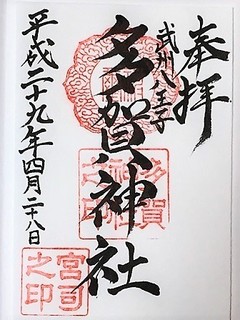 奉拝
武州八王子
多賀神社
平成二十九年四月二十八日
多賀
神社
之印
宮司
之印